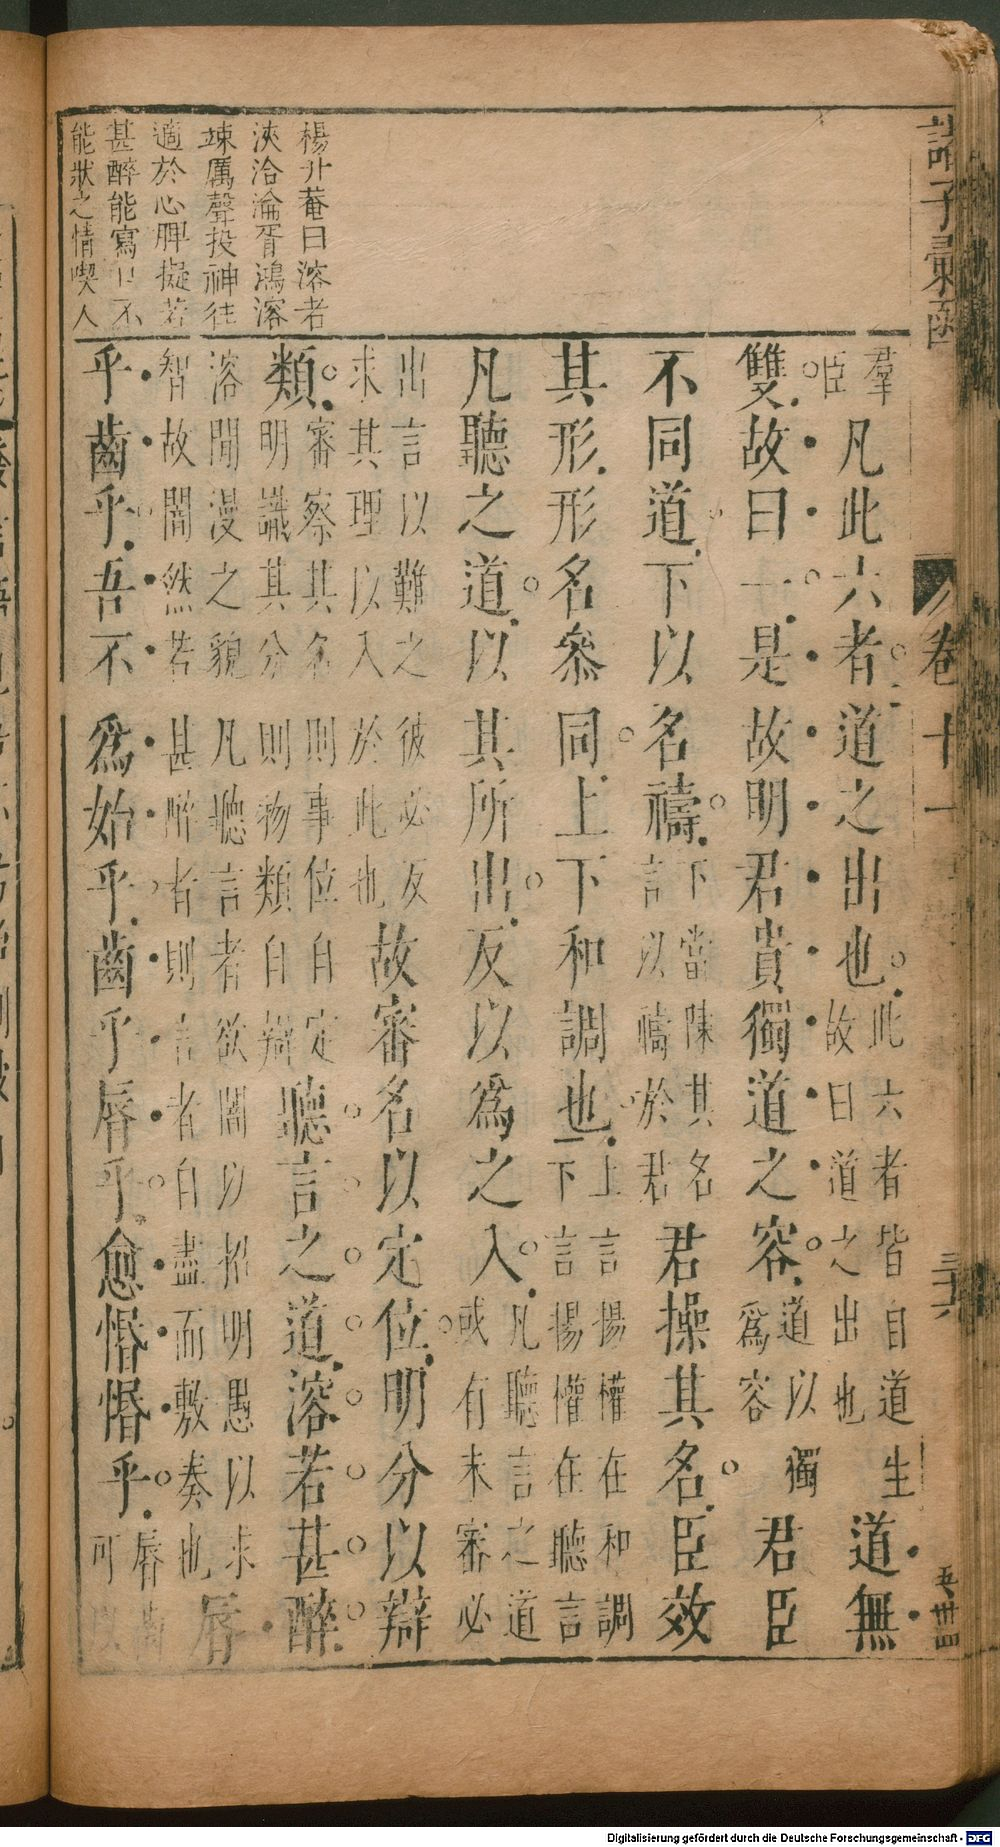 諸子彙函 卷十一 三六
楊升菴曰溶者
浹洽淪胥鴻溶
竦厲聲投神往
適於心脾擬若
甚醉能寫口不
能狀之情喫人
羣臣凡此六者道之出也此六者皆自道生故曰道之出也道無
雙故曰一是故明君貴獨道之容道以獨爲容君臣
不同道下以名禱下當陳其名言以禱於君君操其名臣效
其形形名參同上下和調也上言揚權在和調下言揚權在聽言
凡聽之道以其所出反以爲之入凡聽言之道或有未審必
出言以難之彼必反求其理以入於此也故審名以定位明分以辯
類審察其名則事位自定明識其分則物類自辯聽言之道溶若甚醉
溶閒漫之貌凡聽言者欲闇以招明愚以求智故闇然若甚醉者則言者自盡而敷奏也脣
乎齒乎吾不爲始乎齒乎脣乎愈惛惛乎脣齒可以
Digitalisierung gefördert durch die Deutsche Forschungsgemeinschaft - DFG